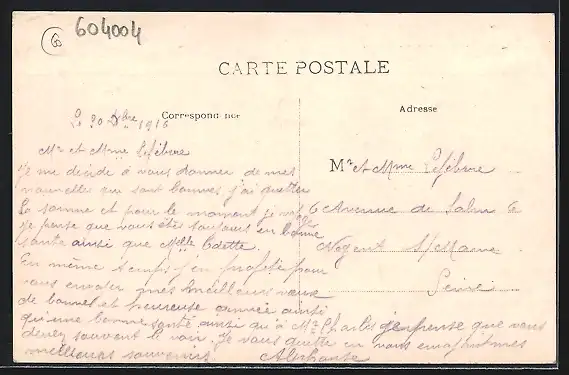 604004
6
CARTE POSTALE
Correspondance
Adresse
Le 20 Dbre 1916
Mr et Mme Lefébvre
Je me décide à vous donner de mes
nouvelles qui sont bonnes j'ai quitter
la somme et pour le moment je
Je pense que vous êtes toujours en bonne
santé ainsi que Melle Odette.
En même temps j'en profite pour
vous envoler mes meilleurs vœux
de bonne et heureuse année ainsi
qu'une bonne santé ainsi qu'à Mr Charles je pense que vous
devez souvent le voir. Je vous quitte en vous
meilleurs souvenirs. Alphonse
Mr et Mme Lefébvre
6 Avenue de
Nogent S/ Marne
Seine